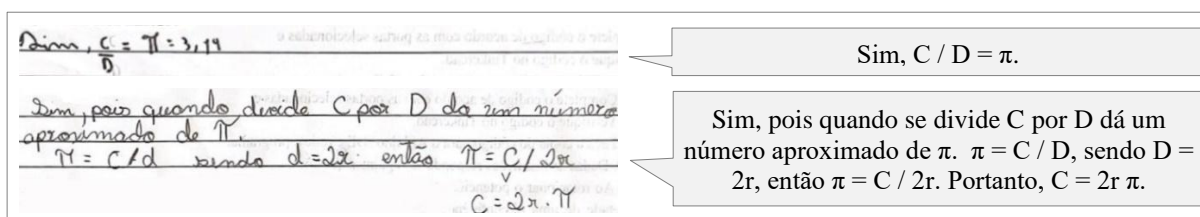 Sim, C/D = π = 3,14
Sim, pois quando divide C por D da um número
aproximado de π.
π = C/d sendo d=2r. então π = C/2r
C = 2r . π
Sim, C / D = π.
Sim, pois quando se divide C por D dá um
número aproximado de π. π = C / D, sendo D =
2r, então π = C / 2r. Portanto, C = 2r π.